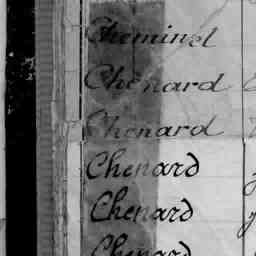 Cheminel
Chenard
Chenard
Chenard
Chenard
Chenard